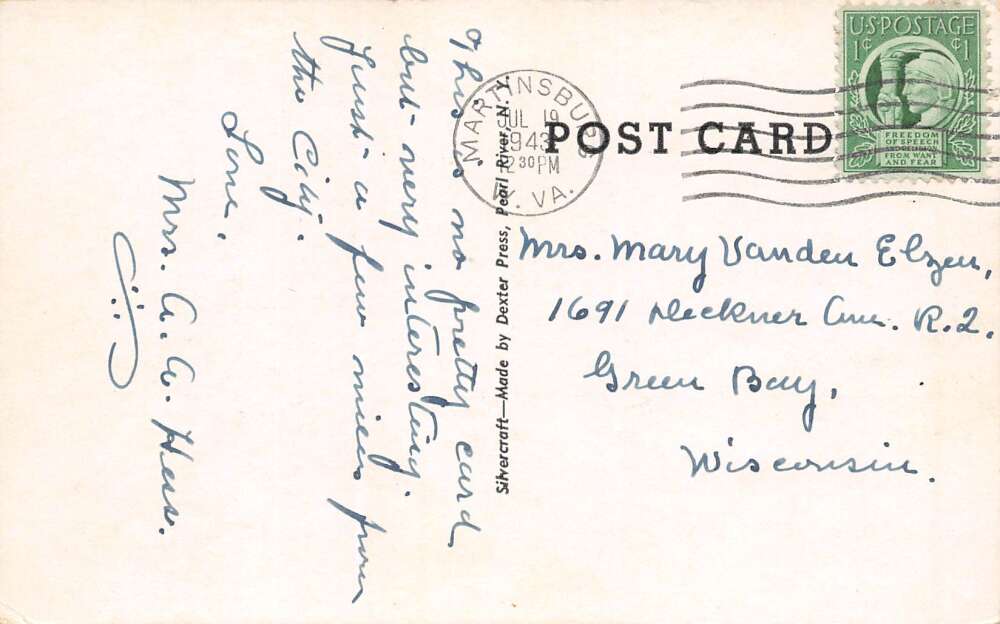 This is no pretty card
but very interesting.
Just a few miles from
the City.
Love,
Mrs. A. A. Hess.
Silvercraft—Made by Dexter Press, Pearl River, N. Y.
MARTINSBURG
JUL 19
1943
2 30 PM
W. VA.
POST CARD
U.S. POSTAGE
1¢ ¢1
FREEDOM
OF SPEECH
AND RELIGION
FROM WANT
AND FEAR
Mrs. Mary Vanden Elzen,
1691 Deckner Ave. R.2.
Green Bay,
Wisconsin.